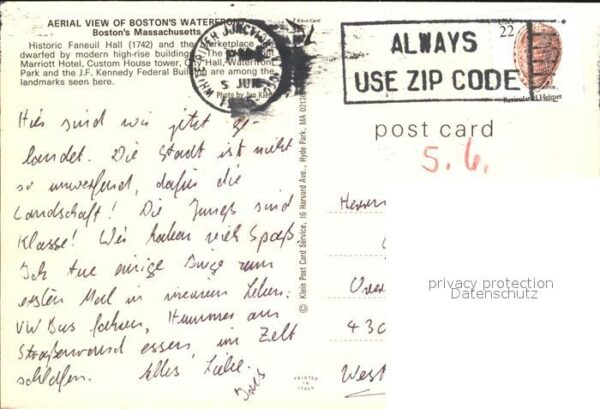 AERIAL VIEW OF BOSTON'S WATERFRONT
Boston's Massachusetts
Historic Faneuil Hall (1742) and the Marketplace
dwarfed by modern high-rise buildings. The
Marriott Hotel, Custom House tower, Hall, Waterfront
Park and the J.F. Kennedy Federal Building are among the
landmarks seen here.
Photo by
WHITE RIVER JUNCTION
PM
5 JUN
ALWAYS
USE ZIP CODE
USA
22
post card
5.6.
© Klein Post Card Service, 16 Harvard Ave., Hyde Park, MA 02136
Hier sind wir jetzt ge
landet. Die Stadt ist nicht
so umwerfend, dafür die
Landschaft! Die Jungs sind
Klasse! Wir haben viel Spaß
Ich tue einige Dinge zum
ersten Mal in meinem Leben:
VW Bus fahren, Hummer am
Straßenrand essen, im Zelt
schlafen. Alles Liebe.
Ines
Herrn
430
West
privacy protection
Datenschutz
PRINTED IN
ITALY